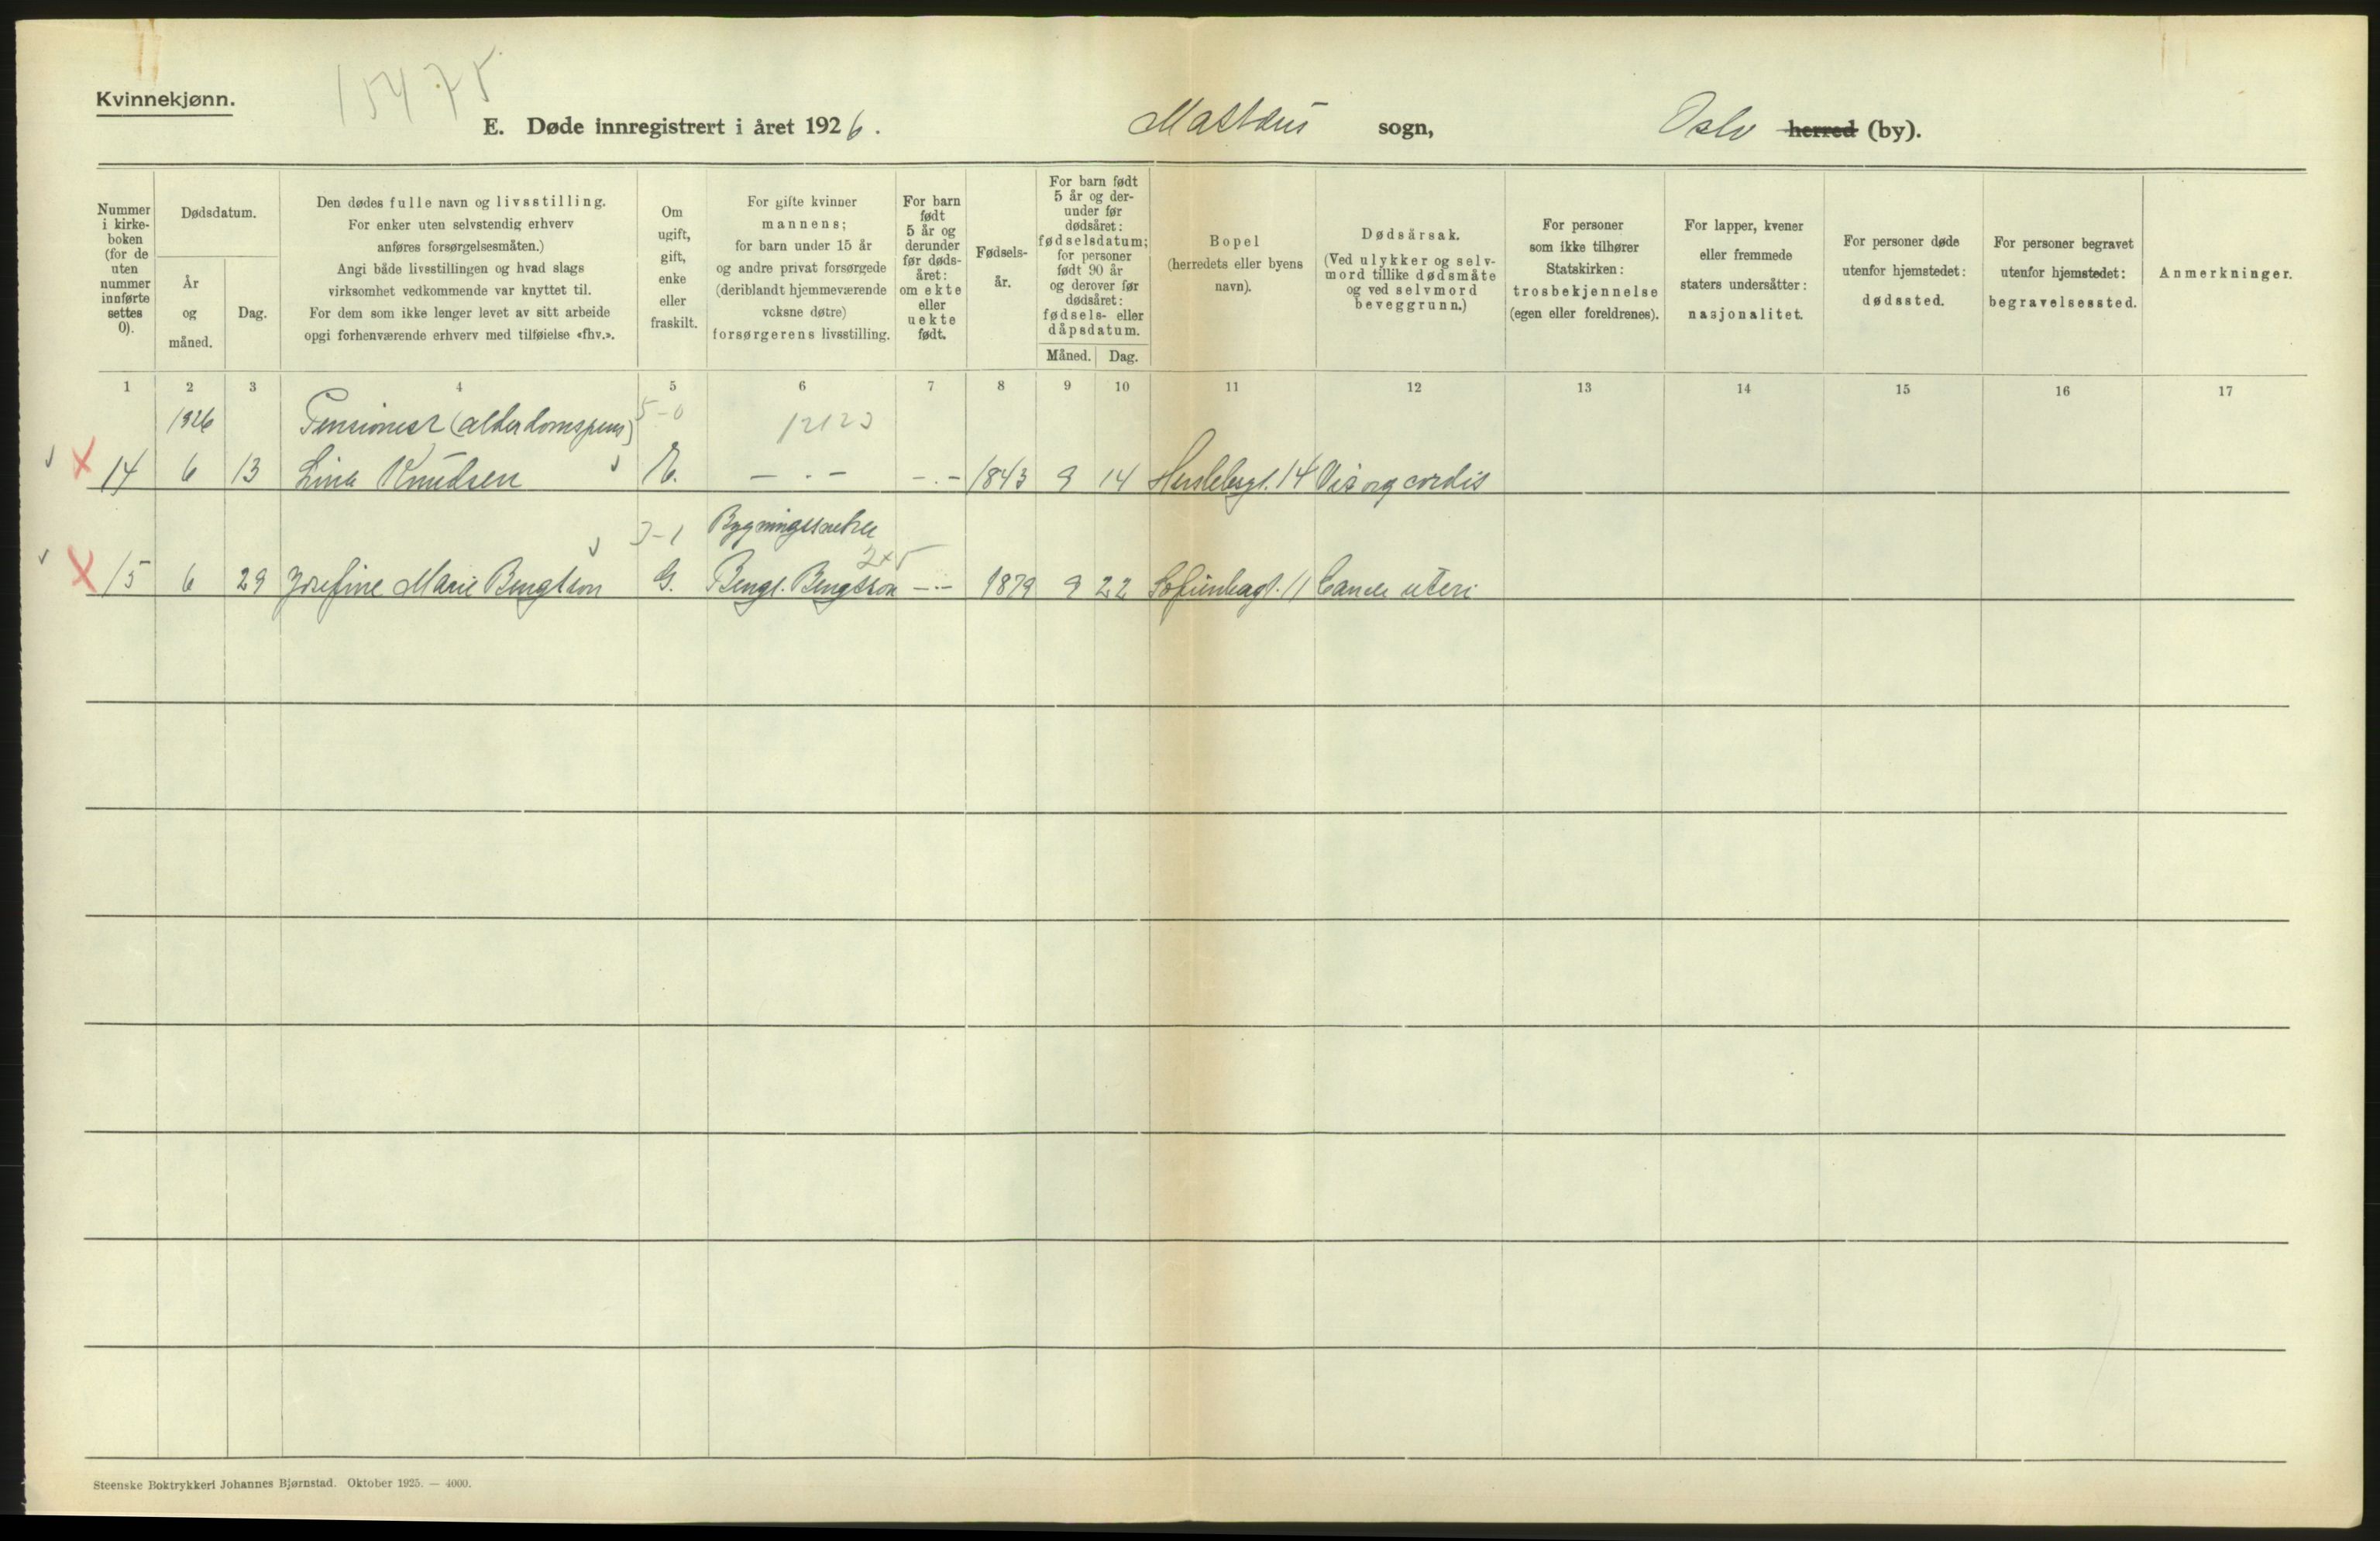 Kvinnekjønn.
15475
E. Døde innregistrert i året 1926. Mattæus sogn, Oslo herred (by).
Nummer i kirke- boken (for de uten nummer innførte settes 0).
Dødsdatum.
År og måned.
Dag.
Den dødes fulle navn og livsstilling.
For enker uten selvstendig erhverv
anføres forsørgelsesmåten.)
Angi både livsstillingen og hvad slags
virksomhet vedkommende var knyttet til.
For dem som ikke lenger levet av sitt arbeide
opgi forhenværende erhverv med tilføielse «fhv.».
Om ugift, gift, enke eller fraskilt.
For gifte kvinner
mannens;
for barn under 15 år
og andre privat forsørgede
(deriblandt hjemmeværende
voksne døtre)
forsørgerens livsstilling.
For barn født 5 år og derunder før døds- året: om ekte eller uekte født.
Fødsels- år.
For barn født 5 år og der- under før dødsåret: fødselsdatum; for personer født 90 år og derover før dødsåret: fødsels- eller dåpsdatum.
Måned. Dag.
Bopel
(herredets eller byens
navn).
Dødsårsak.
(Ved ulykker og selv-
mord tillike dødsmåte
og ved selvmord
beveggrunn.)
For personer
som ikke tilhører
Statskirken:
trosbekjennelse
(egen eller foreldrenes).
For lapper, kvener
eller fremmede
staters undersåtter:
nasjonalitet.
For personer døde
utenfor hjemstedet:
dødssted.
For personer begravet
utenfor hjemstedet:
begravelsessted.
Anmerkninger.
1 2 3 4 5 6 7 8 9 10 11 12 13 14 15 16 17
1926 Pensionest (alderdomspens) 5-0 12123
14 6 13 Lina Knudsen E. — . — — . — 1843 9 14 Herslebsgt. 14 Vis org cordis
3-1
15 6 29 Josefine Marie Bengtson G. Bengt. Bengtson — . — 1879 9 22 Sofienbergt. 11 Cancer uteri
Steenske Boktrykkeri Johannes Bjørnstad. Oktober 1925. — 4000.